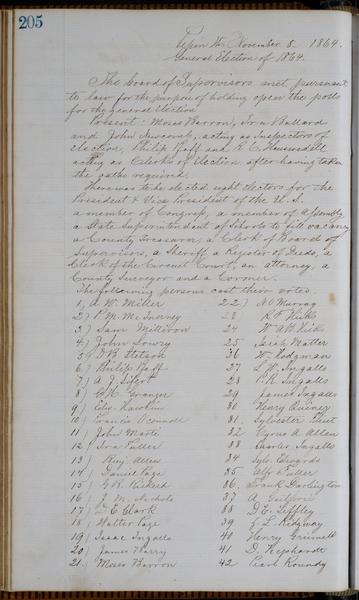 205
Pepin Wis November 8. 1864.
General Election of 1864.
The board of Supervisors met pursuant
to law for the purpose of holding open the polls
for the general Election
Present: Moses Barron, Ira Ballard
and John Newcomb, acting as Inspectors of
Election, Philip Pfaff and R. C.
acting as Clerks of Election after having taken
the oaths required.
There was to be elected eight electors for the
President & Vice President of the U.S.
a member of Congress, a member of Assembly
a State Superintendent of Schools to fill vacancy
a County Treasurer, a Clerk of Board of
Supervisors, a Sheriff a Register of Deeds, a
Clerk of the Circuit Court, an attorney, a
County Surveyor and a Coroner.
The following persons cast their votes.
1, A. W. Miller
2) P. M. McInerney
3) Sam Milliron
4) John Lowry
5) B Stetson
6) Philip Pfaff
7) A. J.
8) Granger
9) Edw. Hawkins
10) Francis O'connell
11) John Marte
12) Ira Fuller
13) Benj. Allen
14) Daniel Page
15) G. R. Rickard
16) J. M. Nichols
17) D E Clark
18) Walter Page
19) Isaac Ingalls
20) James Barry
21. Moses Barron
22) N O Murray
23) R. F. Hicks
24 W. B. Hicks
25 Jacob Matter
26 W. Hodgman
27 L. W. Ingalls
28 P. R. Ingalls
29 James Ingalls
30 Henry Quiner
31. Sylvester
32 Cyrus A Allen
33 Charles Ingalls
34 Sylv. Edwards
35 Alf. Fuller
36. Frank Darlington
37 A.
38 D. E. Tiffley
39 Z. L. Ridgway
40 Henry Grinnell
41 D. Kephardt
42 Pearl Roundy